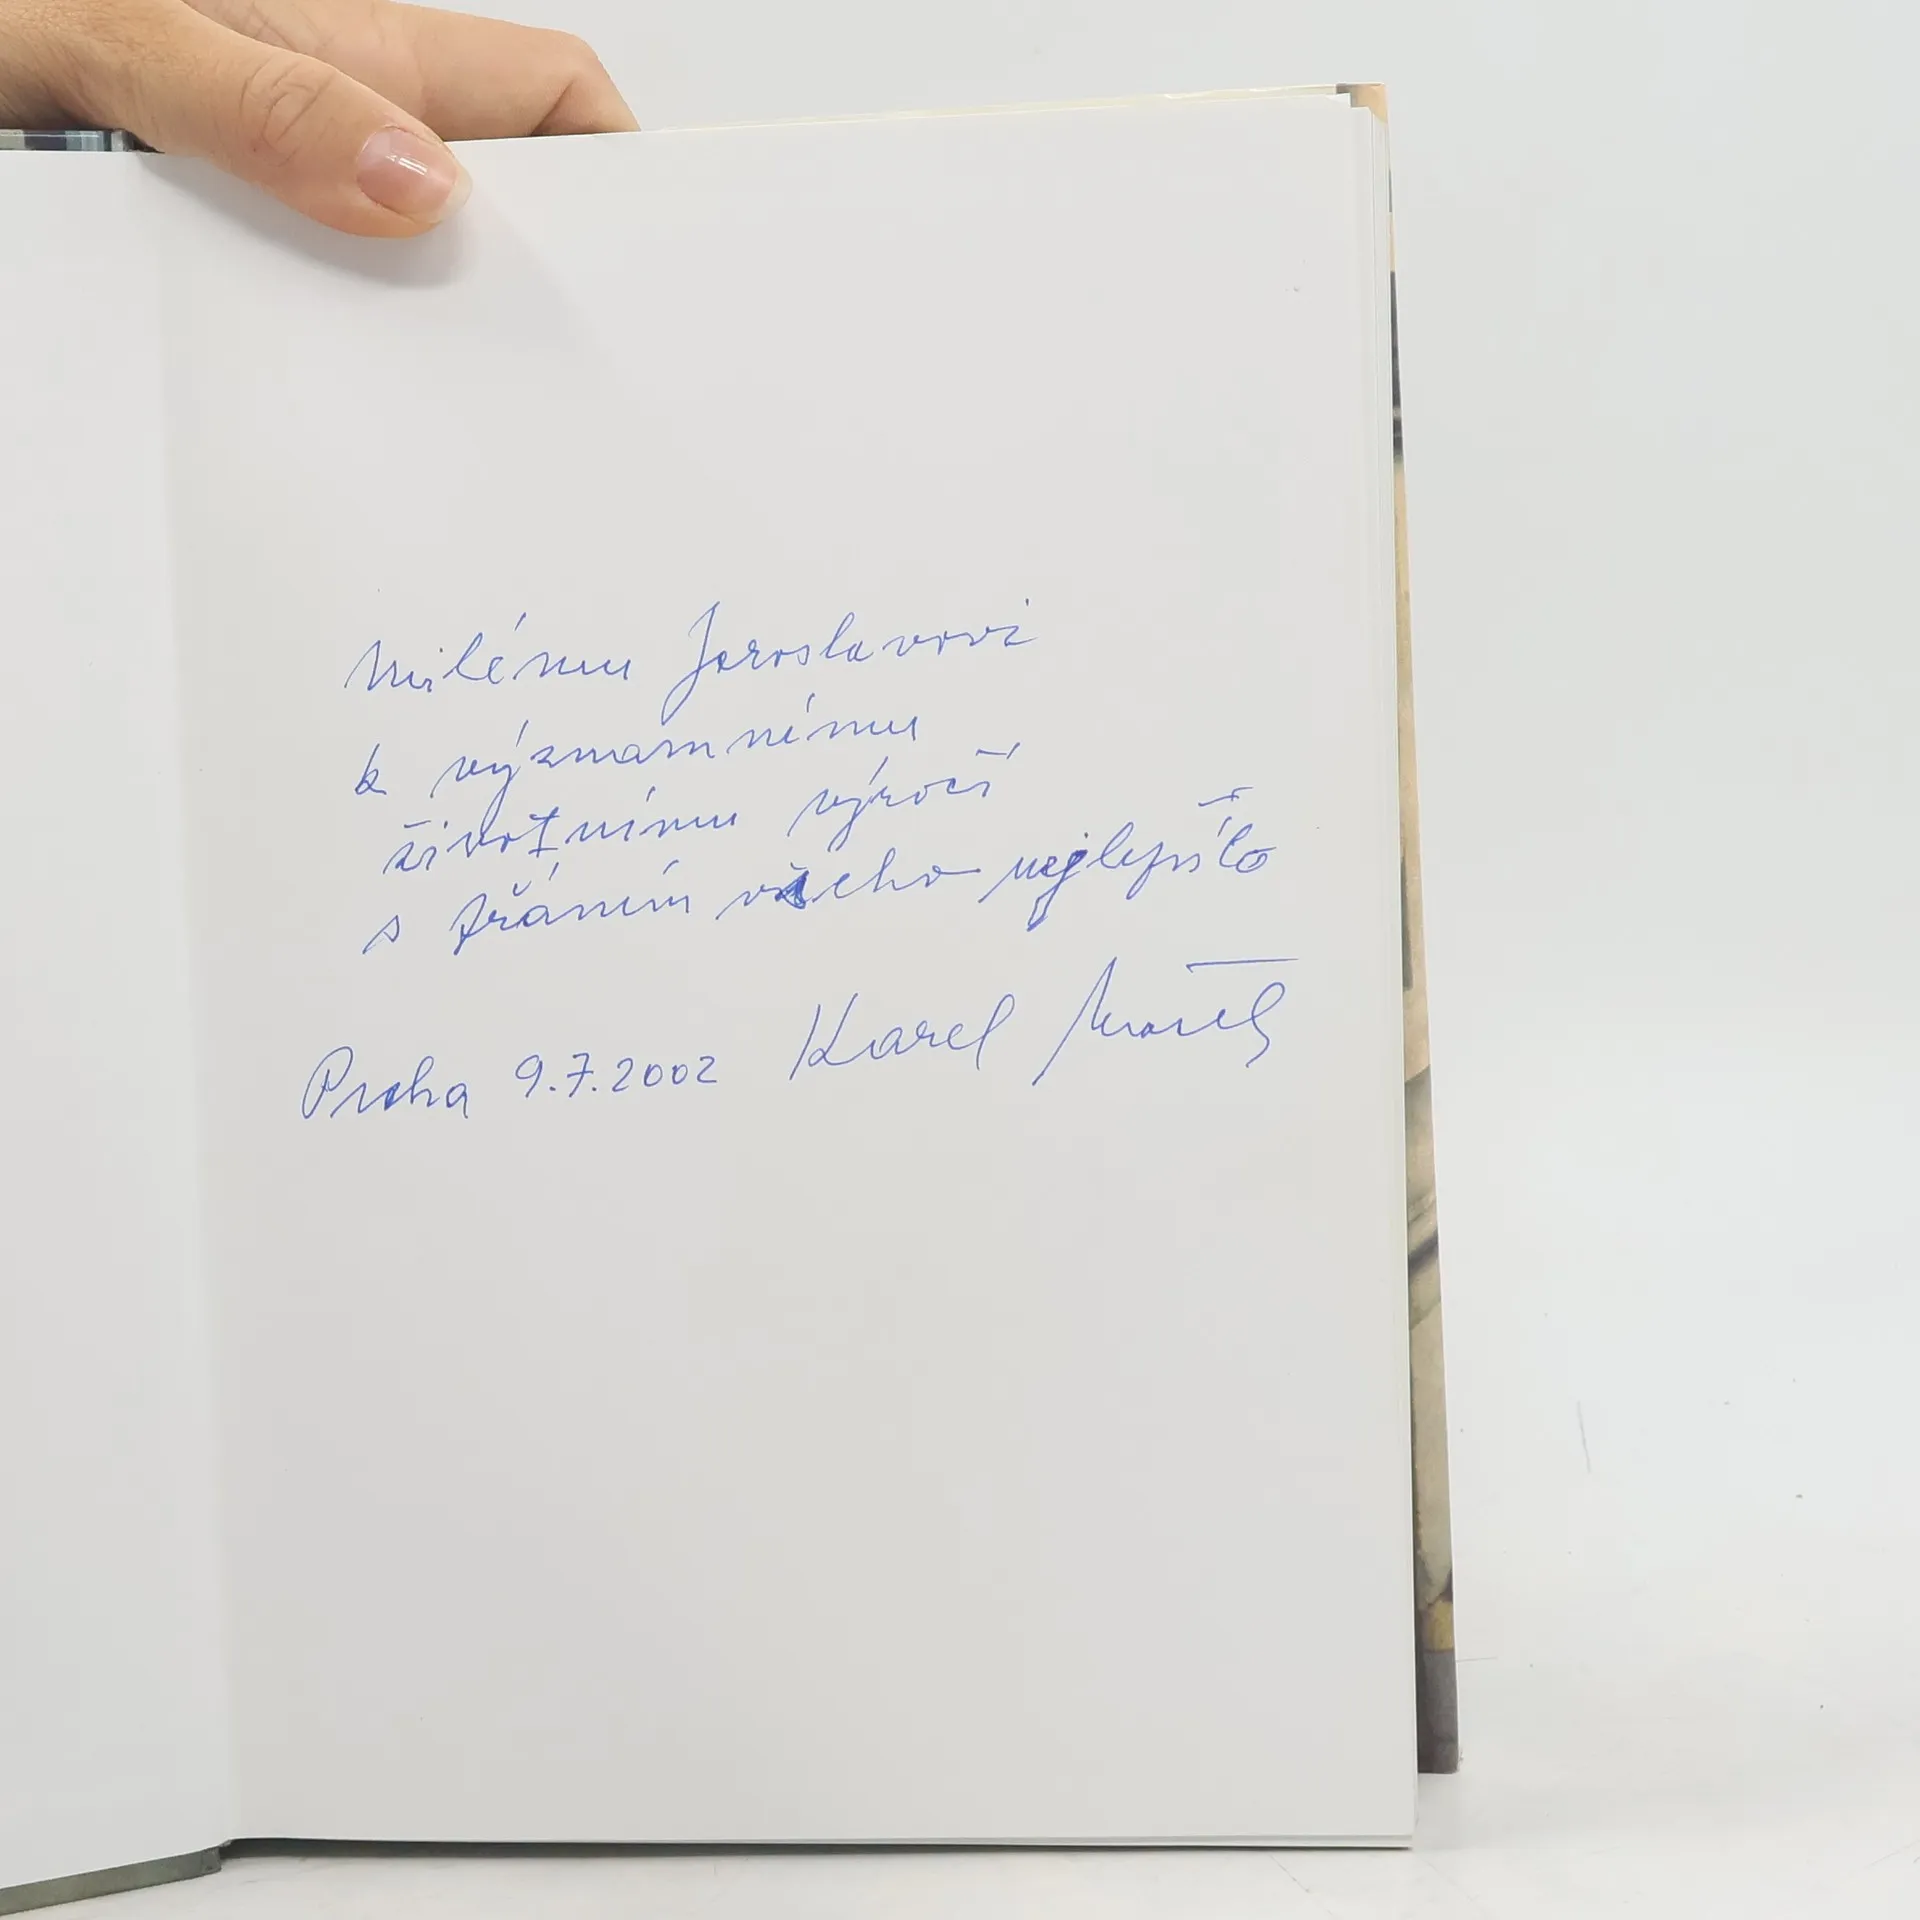 Milému Jaroslavovi
k významnému
životnímu výročí
s přáním všeho nejlepšího
Karel
Praha 9.7.2002